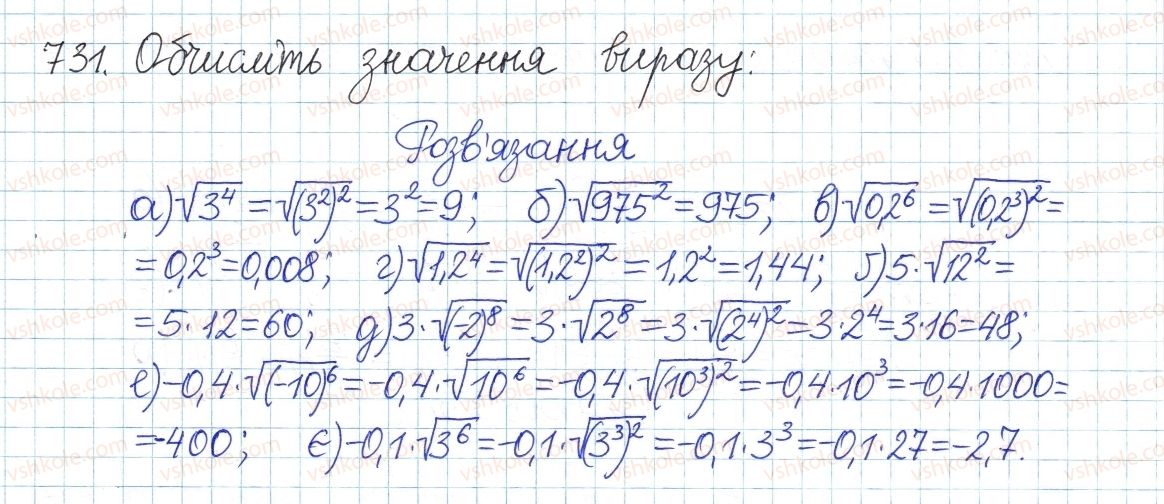 731. Обчисліть значення виразу:
Розв'язання
а) √3⁴ = √(3²)² = 3² = 9; б) √975² = 975; в) √0,2⁶ = √(0,2³)² =
= 0,2³ = 0,008; г) √1,2⁴ = √(1,2²)² = 1,2² = 1,44; ґ) 5·√12² =
= 5·12 = 60; д) 3·√(-2)⁸ = 3·√2⁸ = 3·√(2⁴)² = 3·2⁴ = 3·16 = 48;
е) -0,4·√(-10)⁶ = -0,4·√10⁶ = -0,4·√(10³)² = -0,4·10³ = -0,4·1000 =
= -400; є) -0,1·√3⁶ = -0,1·√(3³)² = -0,1·3³ = -0,1·27 = -2,7.